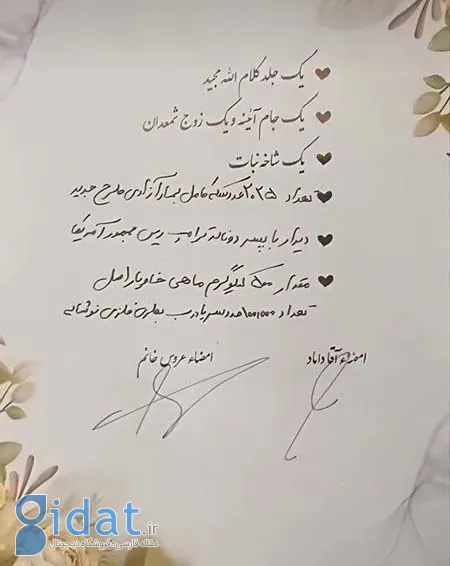 یک جلد کلام الله مجید
یک جام آئینه و یک زوج شمعدان
یک شاخه نبات
تعداد ۲۰۲۵ عدد سکه کامل بهار آزادی طرح جدید
دیدار با پسر دونالد ترامپ رییس جمهور آمریکا
مقدار ۵۰۰ کیلوگرم ماهی خاویار اصل
تعداد ۱۰۰۱۰۰۰ عدد سر یا درب بطری فلزی نوشابه
امضاء آقا داماد
امضاء عروس خانم
gidat.ir
مقاله فارسی و فروشگاه دیجیتال